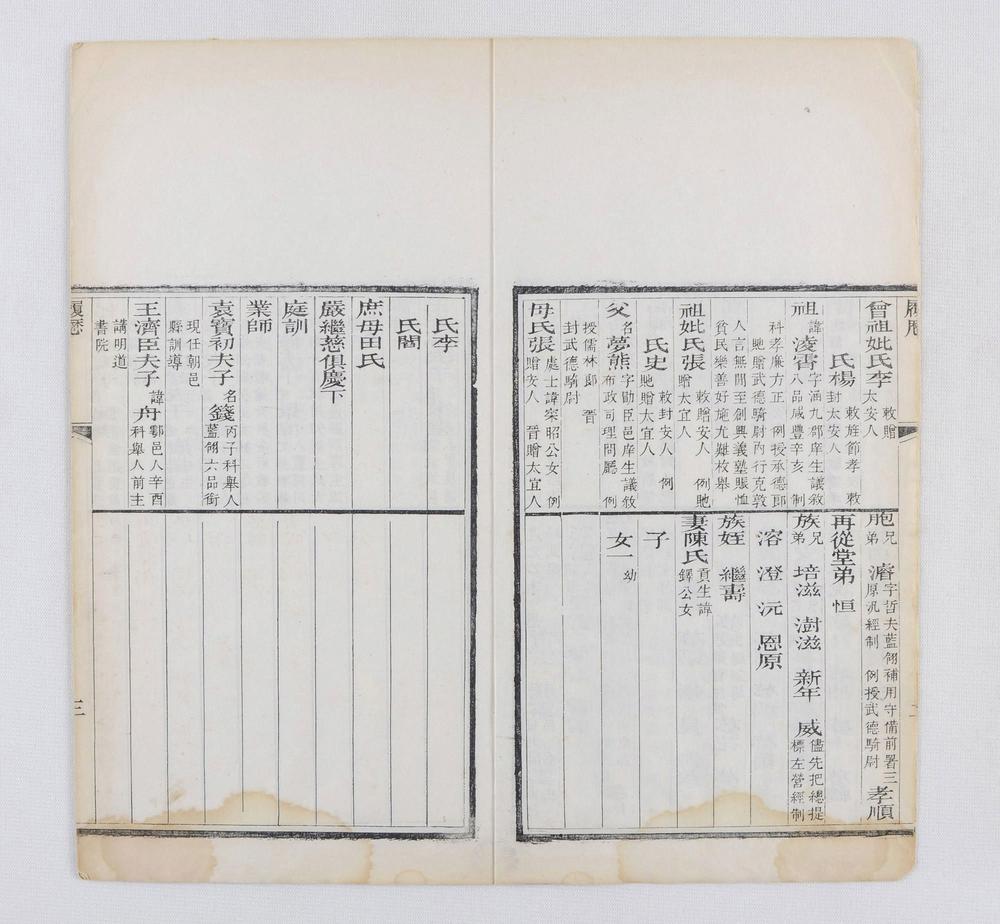 履歷
曾祖妣氏李 敕贈太安人
氏楊 敕旌節孝 敕封太安人
祖 諱凌霄 字涵九郡庠生議敘八品咸豐辛亥 制
科孝廉方正 例授承德郎
貤贈武德騎尉內行克敦
人言無閒至創興義塾賑恤
貧民樂善好施尤難枚舉
祖妣氏張 敕贈安人 例貤贈太宜人
氏史 敕封安人 例貤贈太宜人
父 名夢熊 字勛臣邑庠生議敘布政司理問廳 例
授儒林郎 晉封武德騎尉
母氏張 處士諱宲昭公女 例贈安人 晉贈太宜人
胞兄弟 濬 字哲夫藍翎補用守備前署三原汛經制 例授武德騎尉 孝順
再從堂弟 恒
族兄弟 培滋 澍滋 新年 威 儘先把總提標左營經制
溶 澄 沅 恩原
族姪 繼壽
妻陳氏 貢生諱鐸公女
子
女一 幼
氏李
氏閻
庶母田氏
嚴繼慈俱慶下
庭訓
業師
袁寶初夫子 名籛 丙子科舉人藍翎六品銜
現任朝邑縣訓導
王濟臣夫子 諱舟 鄠邑人辛酉科舉人前主
講明道書院
履歷
三